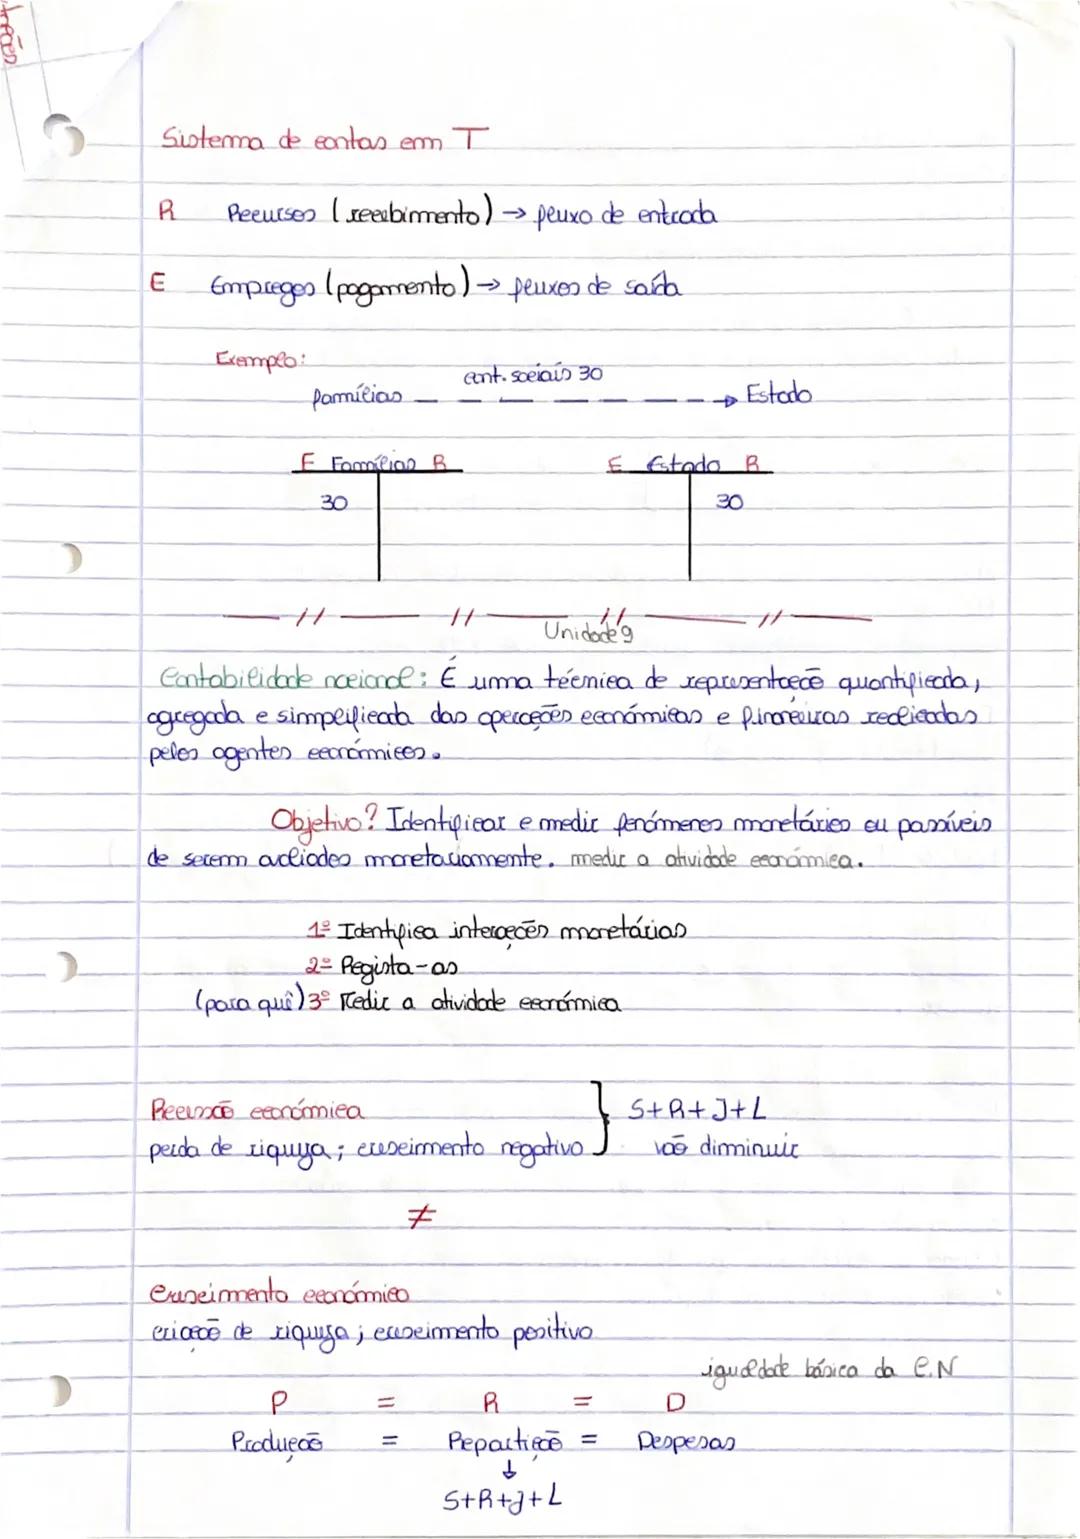 Sistema de contas em T
R Recursos (recebimento) → fluxo de entrada
E Empregos (pagamento) → fluxos de saída
Exemplo:
cont. sociais 30
famílias — — — — — — → Estado
E Famílias R
E Estado R
30
30
// // // //
Unidade 9
Contabilidade nacional: É uma técnica de representação quantificada,
agregada e simplificada das operações económicas e financeiras realizadas
pelos agentes económicos.
Objetivo? Identificar e medir fenómenos monetários ou passíveis
de serem avaliados monetariamente. medir a atividade económica.
1º Identifica interações monetárias
2º Regista-as
(para quê) 3º Medir a atividade económica
Recessão económica
perda de riqueza; crescimento negativo
} S+R+J+L
vão diminuir
≠
Crescimento económico
criação de riqueza; crescimento positivo
igualdade básica da C.N
P = R = D
Produção = Repartição = Despesas
↓
S+R+J+L